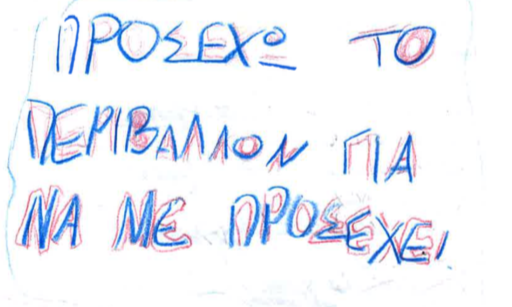 ΠΡΟΣΕΧΩ ΤΟ
ΠΕΡΙΒΑΛΛΟΝ ΓΙΑ
ΝΑ ΜΕ ΠΡΟΣΕΧΕΙ